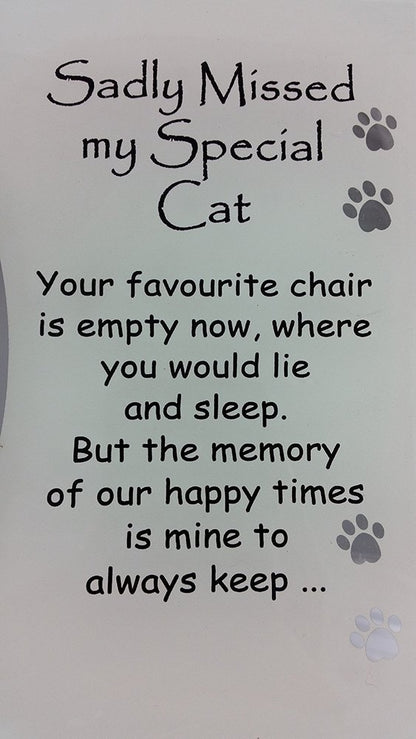 Sadly Missed
my Special
Cat
Your favourite chair
is empty now, where
you would lie
and sleep.
But the memory
of our happy times
is mine to
always keep ...